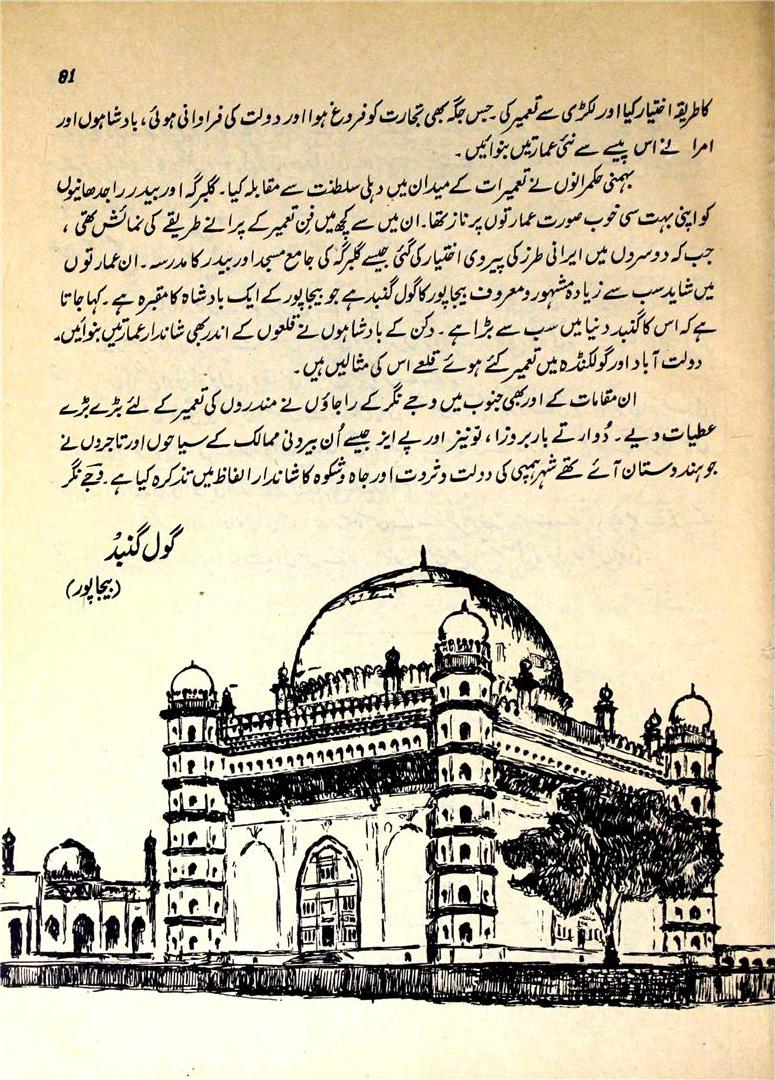 81
کا طریقہ اختیار کیا اور لکڑی سے تعمیر کی۔ جس جگہ بھی تجارت کو فروغ ہوا اور دولت کی فراوانی ہوئی، بادشاہوں اور
امرا نے اس پیسے سے نئی عمارتیں بنوائیں۔
بہمنی حکمرانوں نے تعمیرات کے میدان میں دہلی سلطنت سے مقابلہ کیا۔ گلبرگہ اور بیدر راجدھانیوں
کو اپنی بہت سی خوب صورت عمارتوں پر ناز تھا۔ ان میں سے کچھ میں فن تعمیر کے پرانے طریقے کی نمائش تھی،
جب کہ دوسروں میں ایرانی طرز کی پیروی اختیار کی گئی جیسے گلبرگہ کی جامع مسجد اور بیدر کا مدرسہ۔ ان عمارتوں
میں شاید سب سے زیادہ مشہور و معروف بیجاپور کا گول گنبد ہے جو بیجاپور کے ایک بادشاہ کا مقبرہ ہے۔ کہا جاتا
ہے کہ اس کا گنبد دنیا میں سب سے بڑا ہے۔ دکن کے بادشاہوں نے قلعوں کے اندر بھی شاندار عمارتیں بنوائیں۔
دولت آباد اور گولکنڈہ میں تعمیر کئے ہوئے قلعے اس کی مثالیں ہیں۔
ان مقامات کے اور بھی جنوب میں وجے نگر کے راجاؤں نے مندروں کی تعمیر کے لئے بڑے بڑے
عطیات دیے۔ دُوارتے باربروزا، نونیز اور پے ایز جیسے اُن بیرونی ممالک کے سیاحوں اور تاجروں نے
جو ہندوستان آئے تھے شہر ہمپی کی دولت و ثروت اور جاہ و شکوہ کا شاندار الفاظ میں تذکرہ کیا ہے۔ وجے نگر
گول گنبد
(بیجاپور)